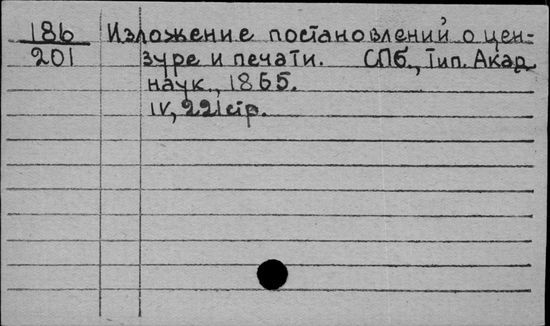 186 Изложение постановлений о цен-
201 зуре и печати. СПб., Тип. Акад.
наук., 1865.
IV, 221 стр.